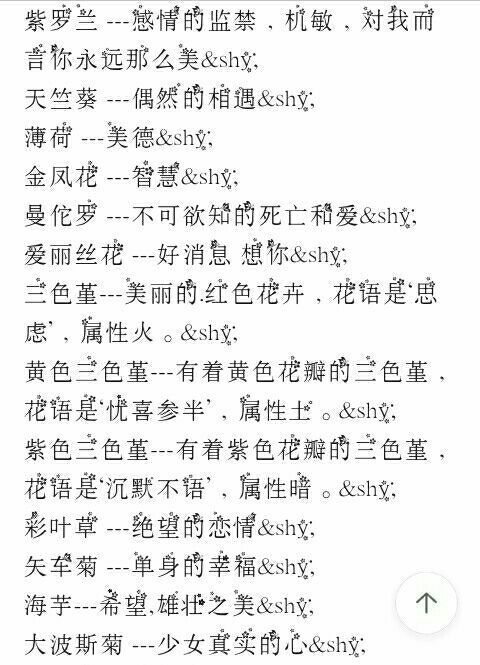 紫罗兰 ---感情的监禁，机敏，对我而
言你永远那么美&shy;
天竺葵 ---偶然的相遇&shy;
薄荷 ---美德&shy;
金凤花 ---智慧&shy;
曼佗罗 ---不可欲知的死亡和爱&shy;
爱丽丝花 ---好消息 想你&shy;
三色堇---美丽的.红色花卉，花语是‘思
虑’，属性火。&shy;
黄色三色堇---有着黄色花瓣的三色堇，
花语是‘忧喜参半’，属性土。&shy;
紫色三色堇---有着紫色花瓣的三色堇，
花语是‘沉默不语’，属性暗。&shy;
彩叶草 ---绝望的恋情&shy;
矢车菊 ---单身的幸福&shy;
海芋---希望,雄壮之美&shy;
大波斯菊 ---少女真实的心&shy;